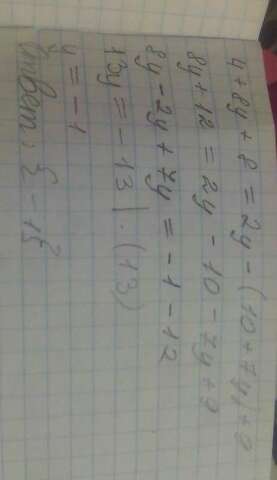 4+8y+8=2y-(10+7y)+9
8y+12=2y-10-7y+9
8y-2y+7y=-1-12
13y=-13|:(13)
y=-1
Ответ: {-1}